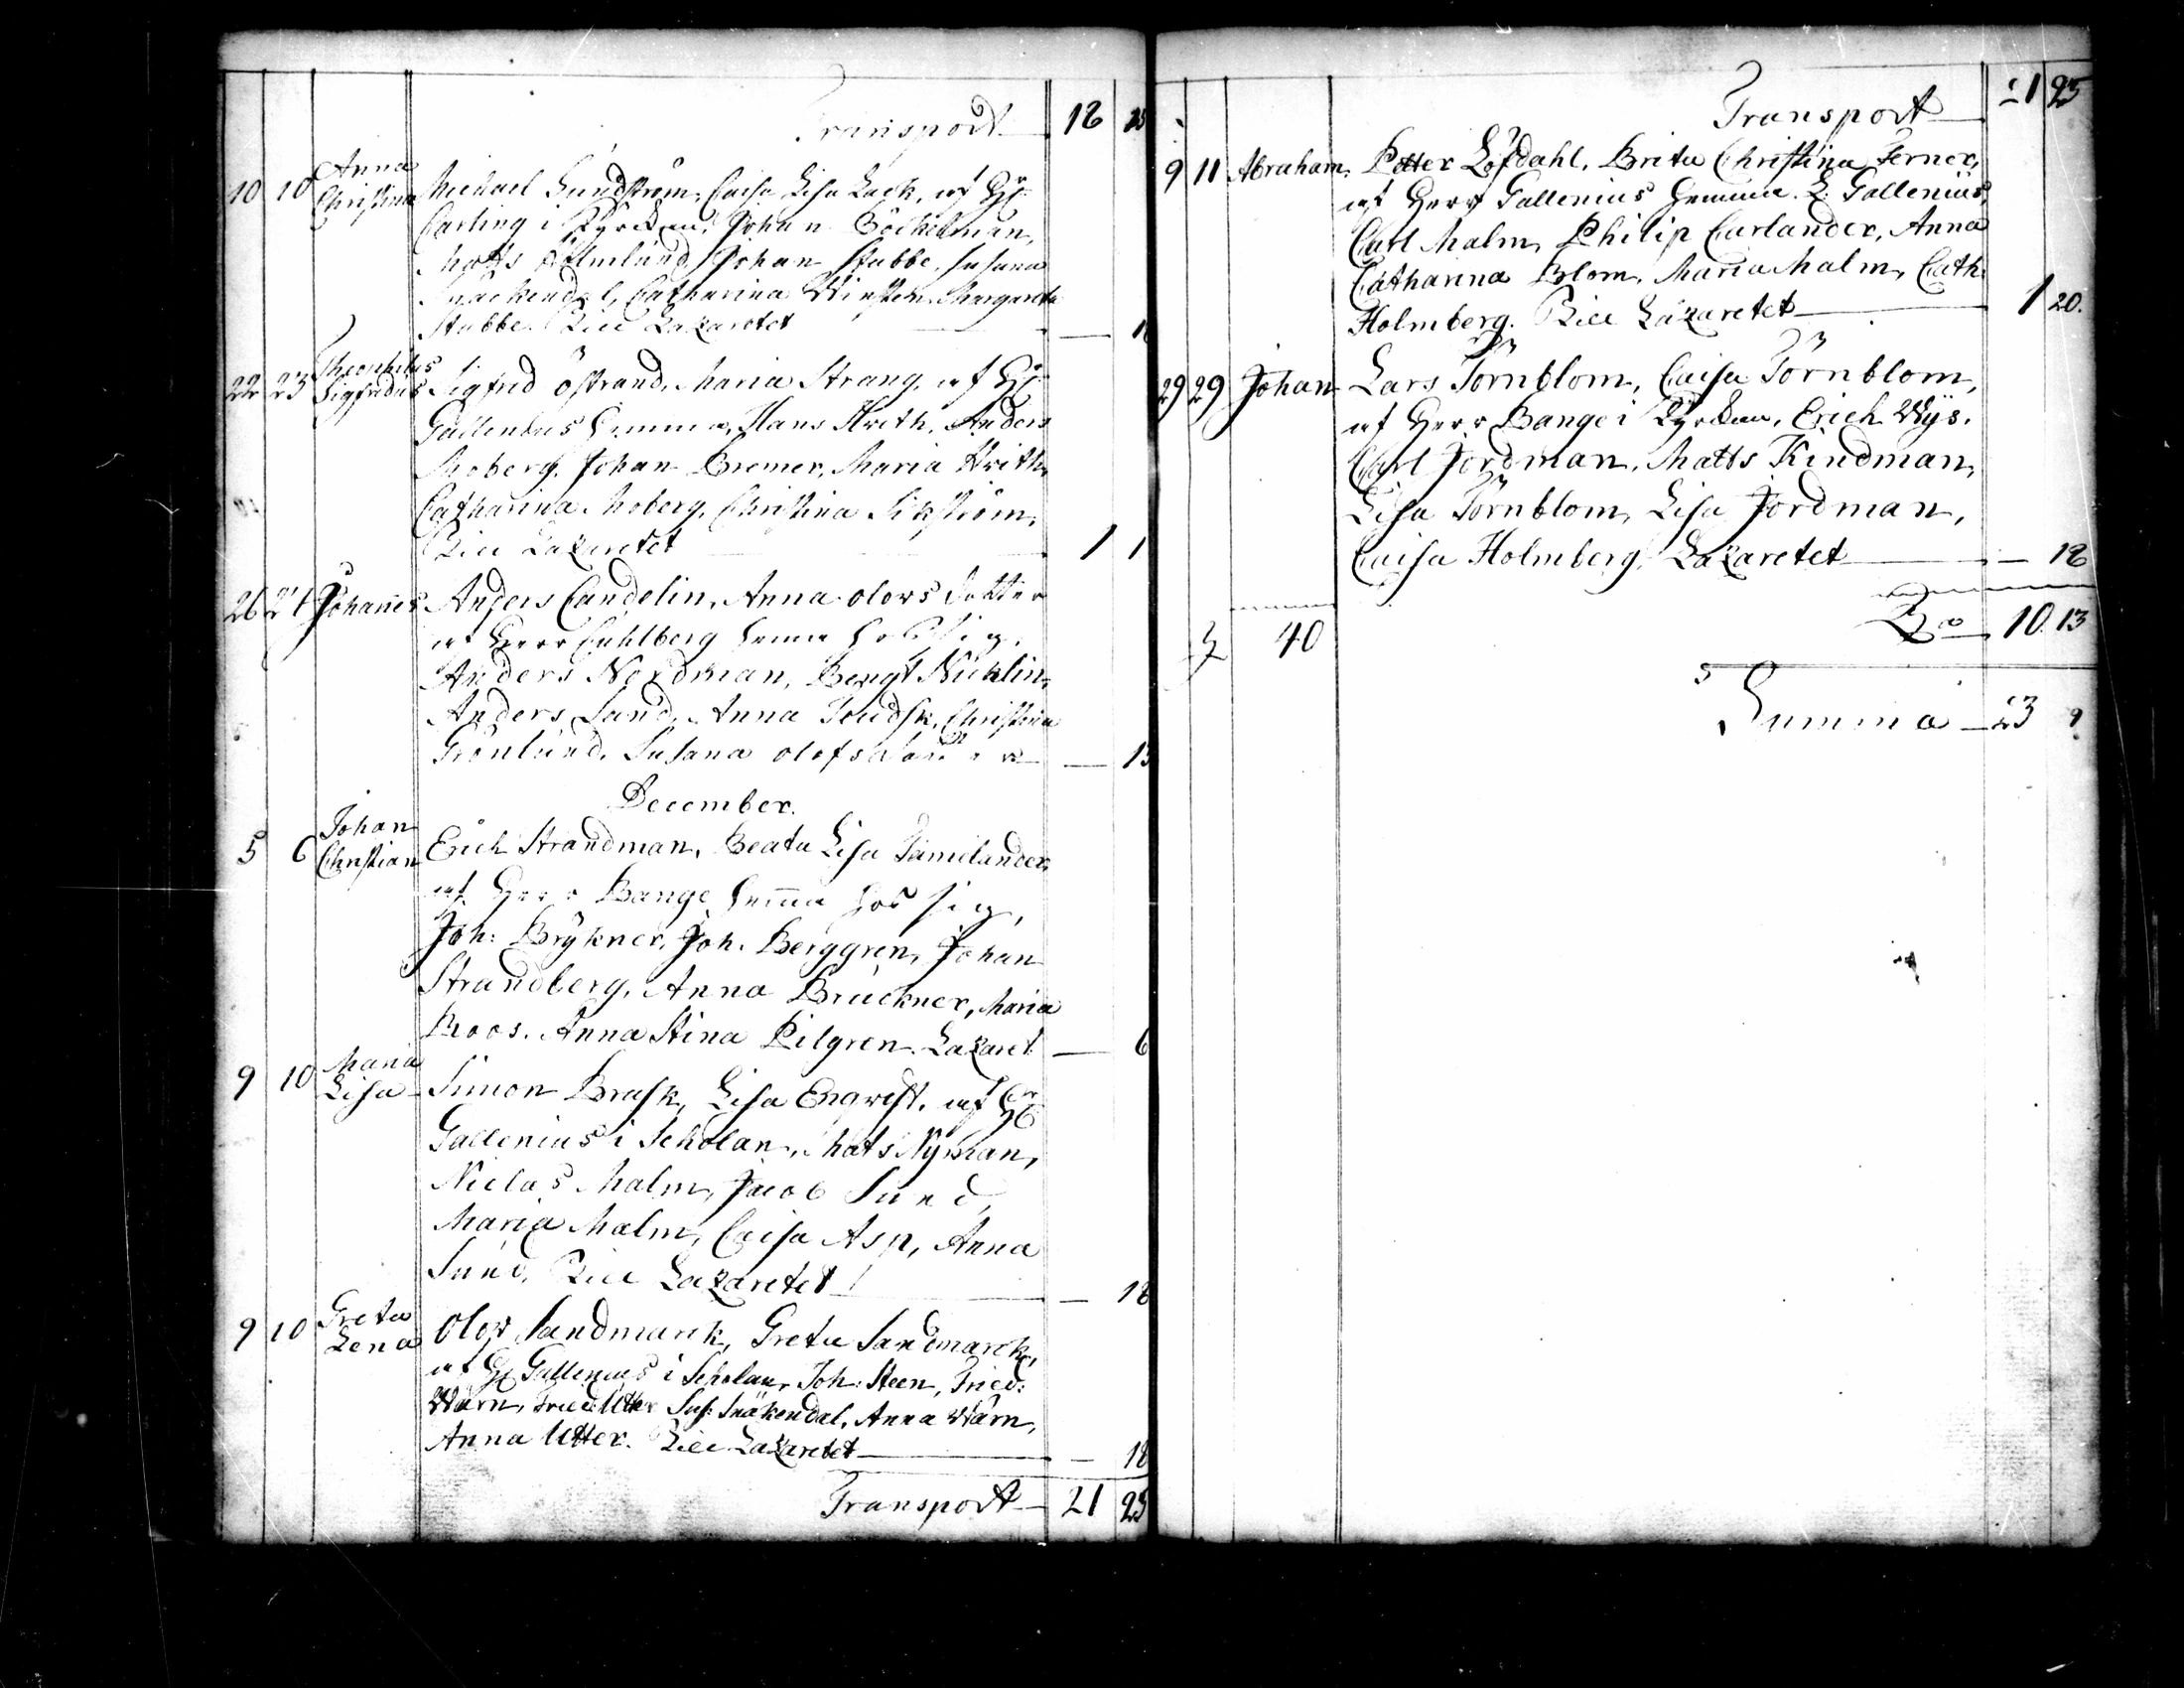 Transport 18 25
10 10 Anna Christina Michael Sundström, Caisa Lisa Lack, af Hr
Carling i Kyrckan, Johan Bödkelman,
Matts Ahlmlund, Johan Stubbe, Susana
Snäckendal, Catharina Winsten, Margareta
Stubbe. Lill Lazaretet — 18
22 23 Theophilus Sigfridus Sigfrid Östrand, Maria Strang, af Hr
Gallenius hemma, Hans Writh, Anders
Moberg, Johan Bremer, Maria Writh,
Catharina Moberg, Christina Sikström,
Lill Lazaretet 1 1
26 27 Johannes Anders Candelin, Anna Olors dotter
af Herr Cahlberg hemma hos sig,
Anders Nordman, Bengt Nicklin,
Anders Sund, Anna Christina
Grönlund, Susana Olofsdotter — 13
December.
5 6 Johan Christian Erich Strandman, Beata Lisa Tamelander,
af Herr Bange hemma hos sig,
Joh: Brÿkner, Joh. Berggren, Johan
Strandberg, Anna Bruckner, Maria
Roos. Anna Stina Pilgren. Lazaret — 6
9 10 Maria Lisa Simon Brask, Lisa Engvist, af Hr
Gallenius i Scholan, Mats Nÿman,
Niclas Malm, Jacob Sund,
Maria Malm, Caisa Asp, Anna
Sund, Lill Lazaretet — 18
9 10 Greta Lena Olof Sandmarck, Greta Sandmarck,
af Hr Gallenius i Scholan, Joh: Steen, Fried:
Wärn, Fried Utter Sus: Snäkendal, Anna Wärn,
Anna Utter. Lill Lazaretet — 18
Transport 21 25
Transport 21 25
9 11 Abraham, Petter Löfdahl, Brita Christina Ferner,
af Herr Gallenius hemma. L: Gallenius,
Carl Malm, Philip Carlander, Anna
Catharina Blom, Maria Malm, Cath:
Holmberg. Lill Lazaretet 1 20.
29 29 Johan Lars Törnblom, Caisa Törnblom,
af Herr Bange i Kyrckan, Erich Wÿs.
Carl Jordman, Matts Kindman,
Lisa Törnblom, Lisa Jordman,
Caisa Holmberg, Lazaretet — 18
40 10 13
Summa 23 9